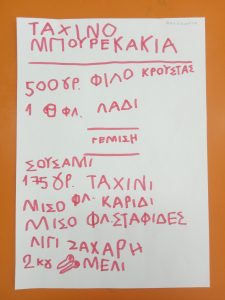 ΤΑΧΙΝΟ
ΜΠΟΥΡΕΚΑΚΙΑ
500 ΓΡ. ΦΙΛΟ ΚΡΟΥΣΤΑΣ
1 ΦΛ. ΛΑΔΙ
ΓΕΜΙΣΗ
ΣΟΥΣΑΜΙ
175 ΓΡ. ΤΑΧΙΝΙ
ΜΙΣΟ ΦΛ. ΚΑΡΙΔΙ
ΜΙΣΟ ΦΛ. ΣΤΑΦΙΔΕΣ
ΖΑΧΑΡΗ
2 ΚΟΥ ΜΕΛΙ